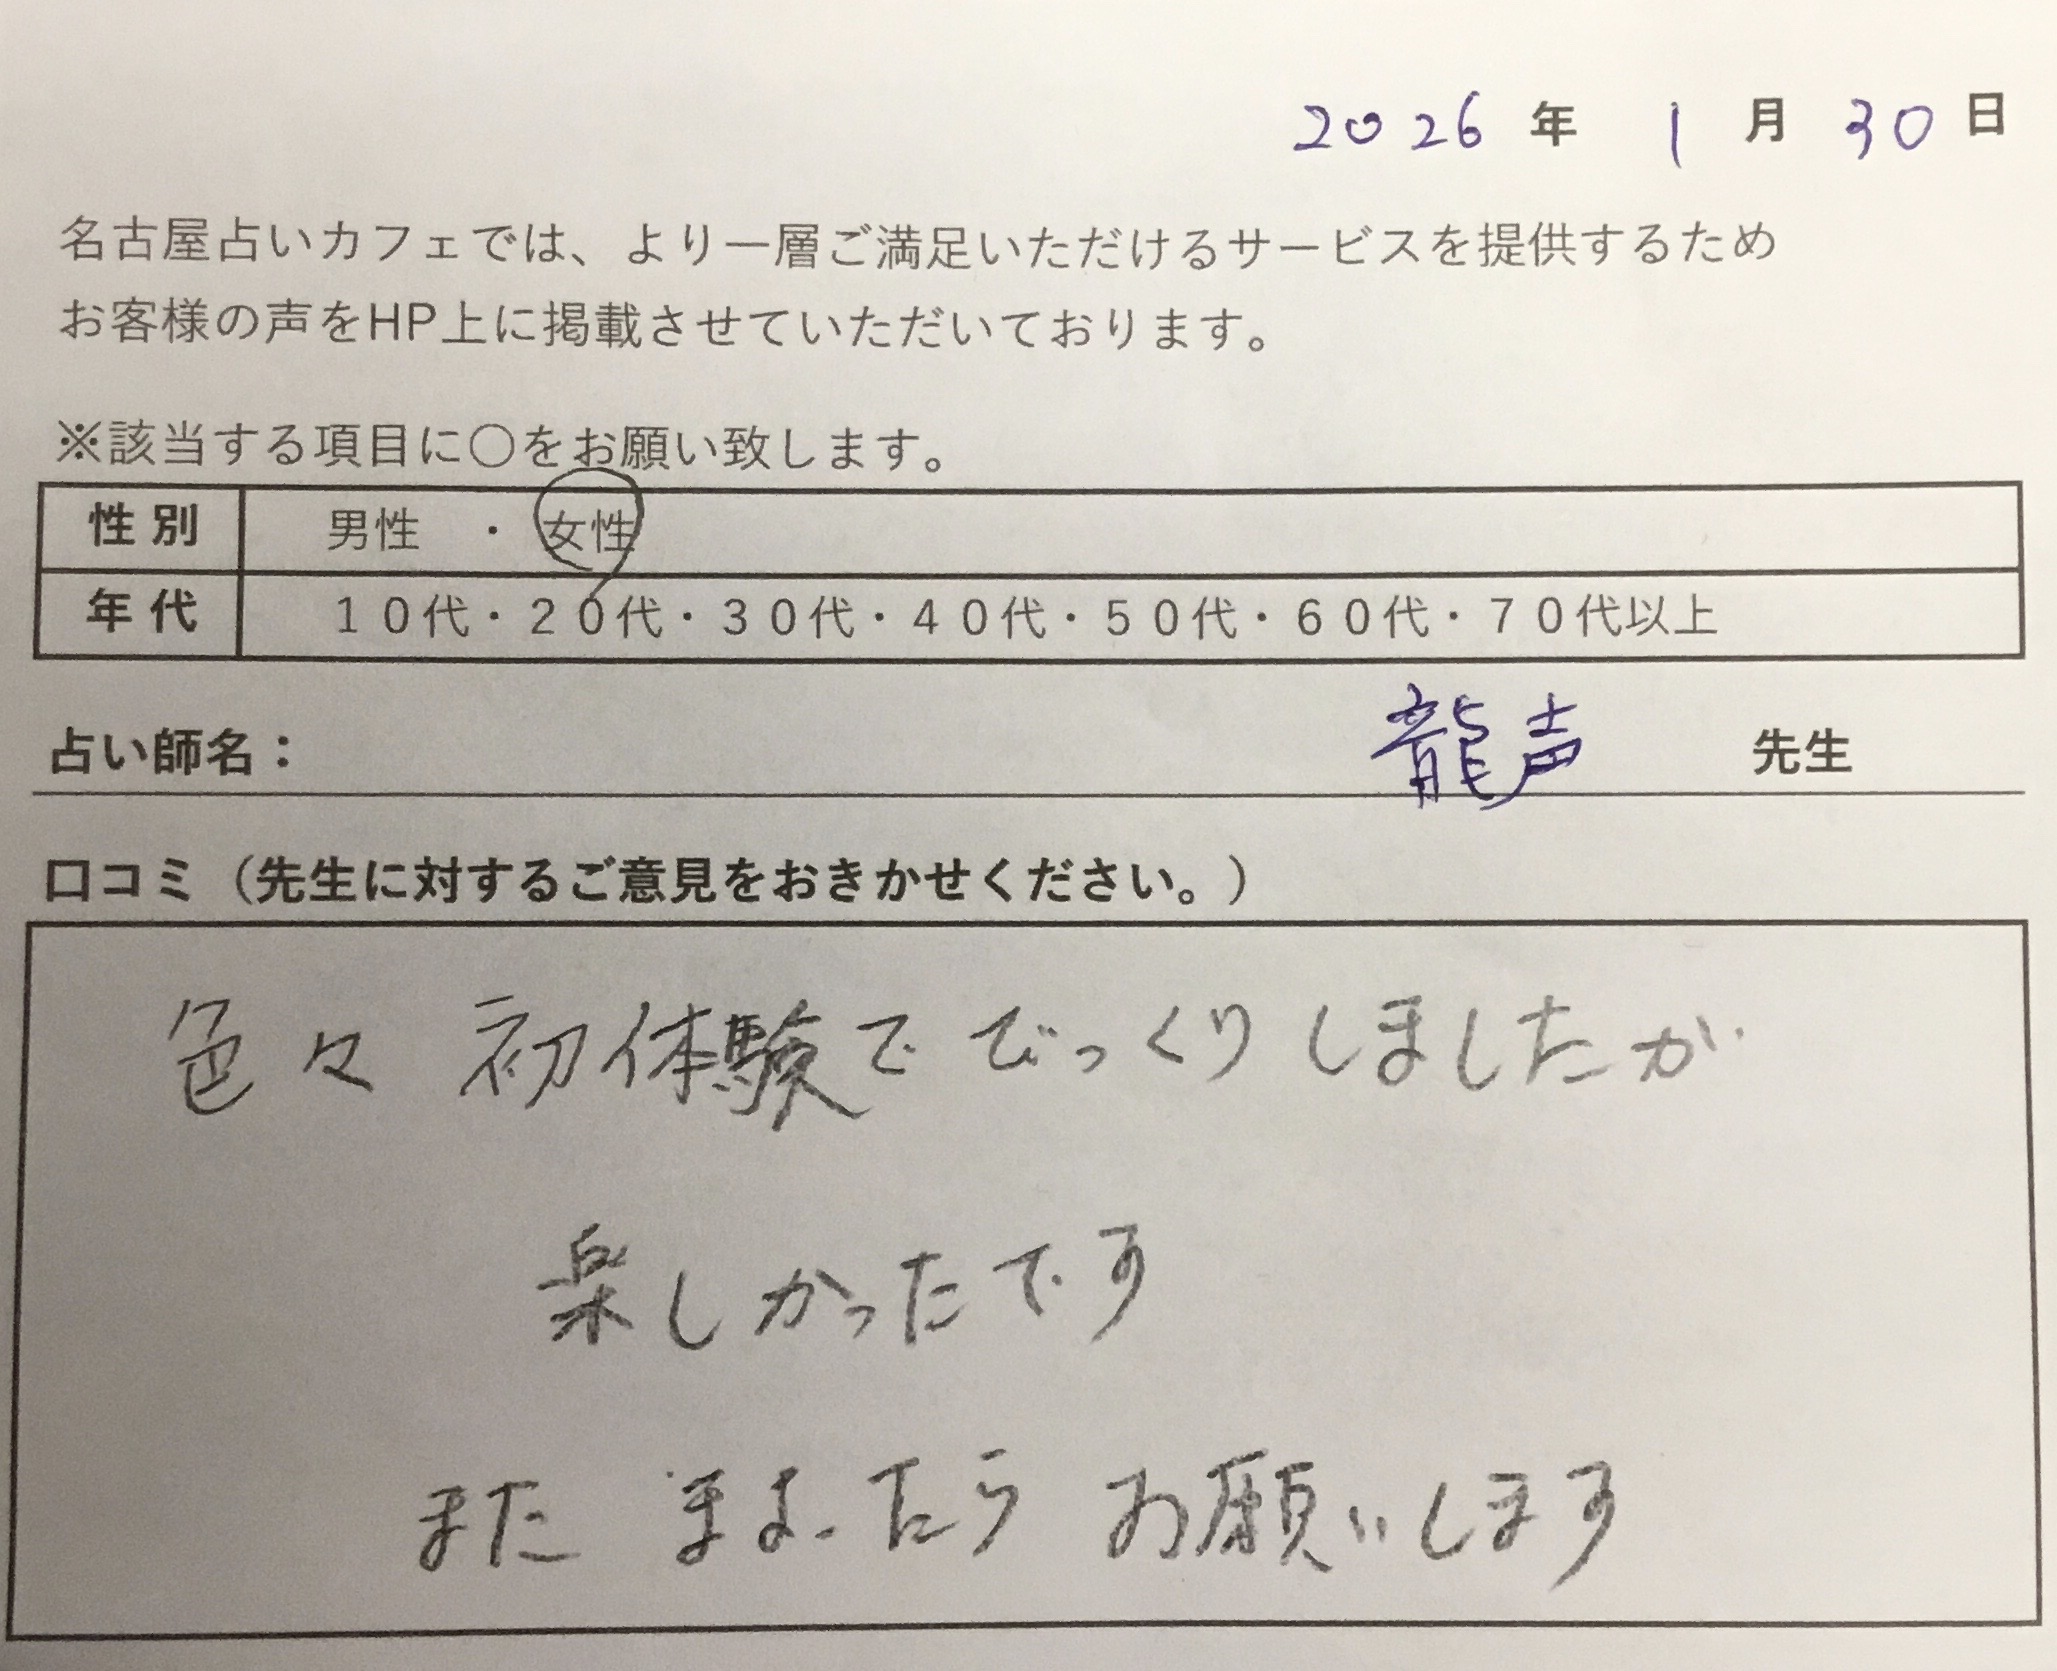 2026年 1月 30日
名古屋占いカフェでは、より一層ご満足いただけるサービスを提供するため
お客様の声をHP上に掲載させていただいております。
※該当する項目に〇をお願い致します。
性別 男性 ・ 女性
年代 10代・20代・30代・40代・50代・60代・70代以上
占い師名： 龍声 先生
口コミ（先生に対するご意見をおきかせください。）
色々 初体験で びっくりしましたが
楽しかったです
また お願いします